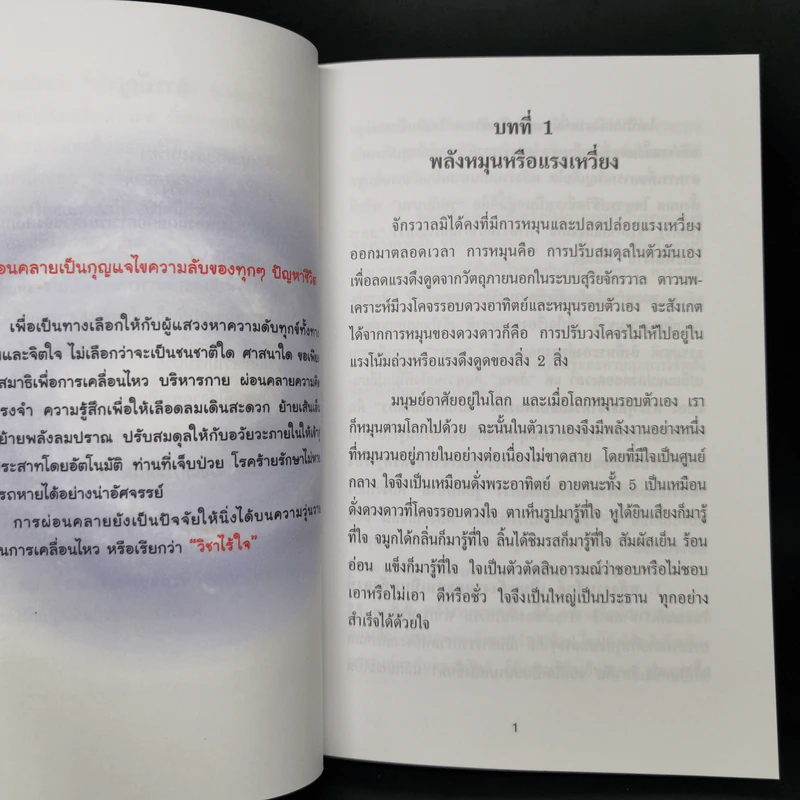 อนคลายเป็นกุญแจไขความลับของทุกๆ ปัญหาชีวิต
เพื่อเป็นทางเลือกให้กับผู้แสวงหาความดับทุกข์ทั้งทาง
และจิตใจ ไม่เลือกว่าจะเป็นชนชาติใด ศาสนาใด ขอเพียง
สมาธิเพื่อการเคลื่อนไหว บริหารกาย ผ่อนคลายความคิด
ความรู้สึกเพื่อให้เลือดลมเดินสะดวก ย้ายเส้นเอ็น
ย้ายพลังลมปราณ ปรับสมดุลให้กับอวัยวะภายในให้เข้าสู่
ประสาทโดยอัตโนมัติ ท่านที่เจ็บป่วย โรคร้ายรักษาไม่หาย
รถหายได้อย่างน่าอัศจรรย์
การผ่อนคลายยังเป็นปัจจัยให้นิ่งได้บนความวุ่นวาย
นการเคลื่อนไหว หรือเรียกว่า "วิชาไร้ใจ"
บทที่ 1
พลังหมุนหรือแรงเหวี่ยง
จักรวาลมิได้คงที่มีการหมุนและปลดปล่อยแรงเหวี่ยง
ออกมาตลอดเวลา การหมุนคือ การปรับสมดุลในตัวมันเอง
เพื่อลดแรงดึงดูดจากวัตถุภายนอกในระบบสุริยจักรวาล ดาวนพ-
เคราะห์มีวงโคจรรอบดวงอาทิตย์และหมุนรอบตัวเอง จะสังเกต
ได้จากการหมุนของดวงดาวก็คือ การปรับวงโคจรไม่ให้ไปอยู่ใน
แรงโน้มถ่วงหรือแรงดึงดูดของสิ่ง 2 สิ่ง
มนุษย์อาศัยอยู่ในโลก และเมื่อโลกหมุนรอบตัวเอง เรา
ก็หมุนตามโลกไปด้วย ฉะนั้นในตัวเราเองจึงมีพลังงานอย่างหนึ่ง
ที่หมุนวนอยู่ภายในอย่างต่อเนื่องไม่ขาดสาย โดยที่มีใจเป็นศูนย์
กลาง ใจจึงเป็นเหมือนดั่งพระอาทิตย์ อายตนะทั้ง 5 เป็นเหมือน
ดั่งดวงดาวที่โคจรรอบดวงใจ ตาเห็นรูปมารู้ที่ใจ หูได้ยินเสียงก็มารู้
ที่ใจ จมูกได้กลิ่นก็มารู้ที่ใจ ลิ้นได้ชิมรสก็มารู้ที่ใจ สัมผัสเย็น ร้อน
อ่อน แข็งก็มารู้ที่ใจ ใจเป็นตัวตัดสินอารมณ์ว่าชอบหรือไม่ชอบ
เอาหรือไม่เอา ดีหรือชั่ว ใจจึงเป็นใหญ่เป็นประธาน ทุกอย่าง
สำเร็จได้ด้วยใจ
1